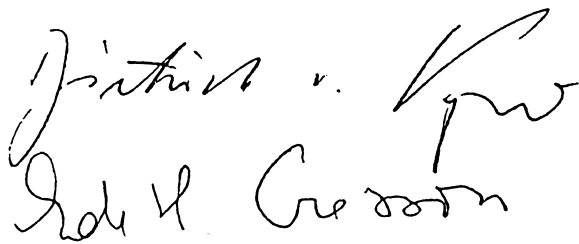 Dietrich v.
Edith Cresson